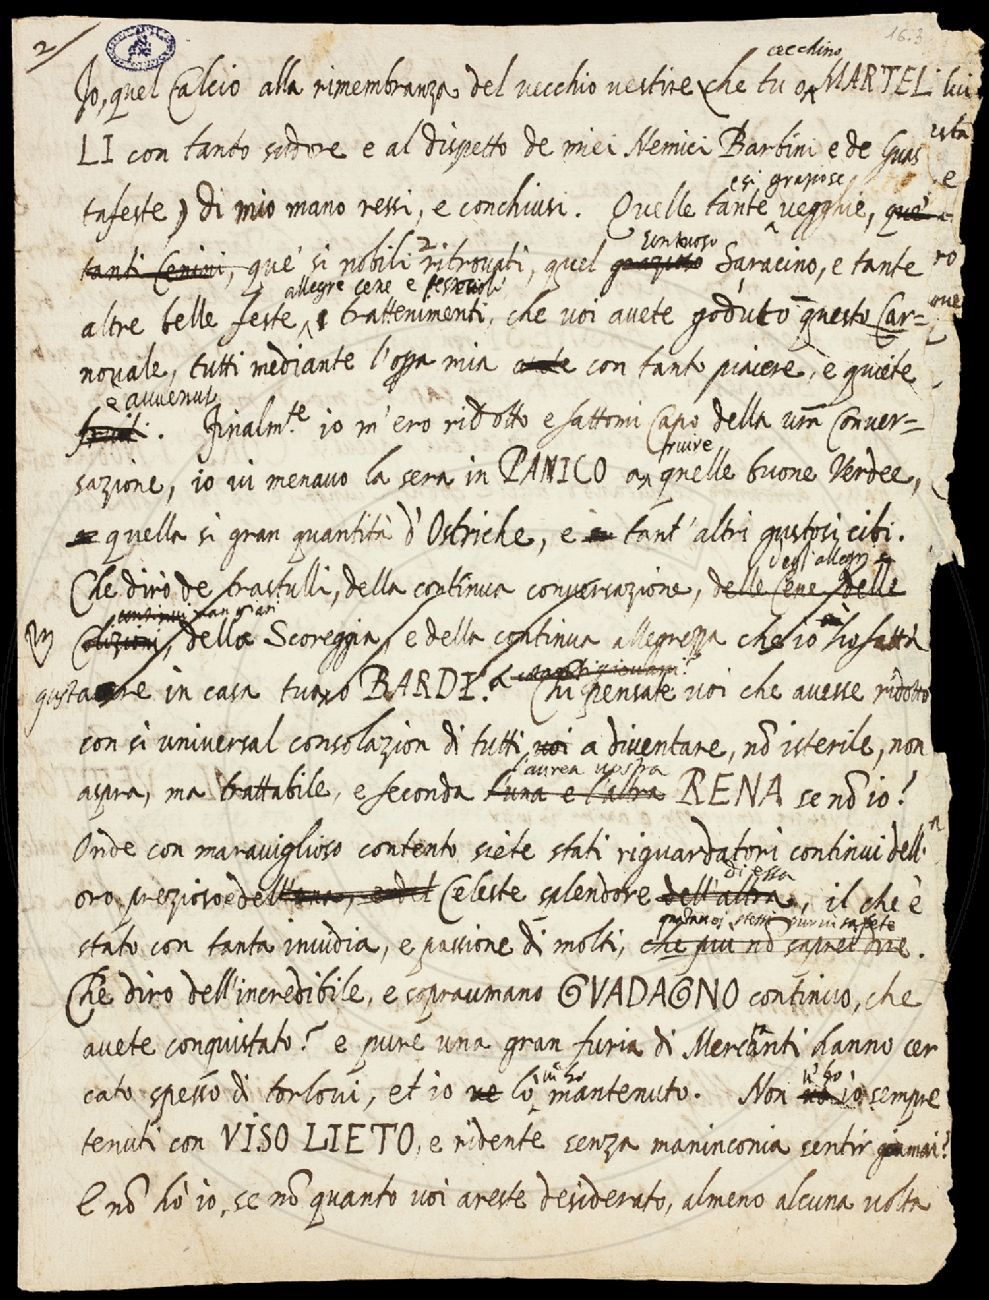 2
16.3
cecchino
Io, quel Calcio alla rimembranza del vecchio vestire che tu o MARTEL
LI con tanto sudore e al dispetto de miei Nemici Bartini e de Guas
e si grapose
tafeste) di mio mano ressi, e conchiusi. Quelle tante vegghie, que
suntuoso
tanti Cenini, que' si nobili ritrovati, quel grazioso Saracino, e tante
allegre cene e
altre belle feste, e trattenimenti, che voi avete goduto questo Car=
novale, tutti mediante l'opra mia con tanto piacere, e quiete
è avvenuto
. Finalm.te io m'ero ridotto e fattomi Capo della vrã Conver=
fruire
sazione, io vi menavo la sera in PANICO a quelle buone Verdee,
quella si gran quantità d'Ostriche, e tant'altri gustosi cibi.
degl'allegri
Che dirò de trastulli, della continua conversazione, delle Cene delle
continui mangiari
Colizioni, della Scoreggia, e della continua allegrezza che io ho fatta
gustare in casa tua o BARDI. Chi pensate voi che avesse ridotto
con si universal consolazion di tutti voi a diventare, nõ isterile, non
l'aurea vostra
aspra, ma trattabile, e feconda l'una e l'altra RENA se nõ io?
Onde con maraviglioso contento siete stati riguardatori continui dell'
di essa
oro prezioso e del Celeste splendore dell'altra, il che è
stato con tanta invidia, e passione di molti, che più nõ saprei dire.
Che dirò dell'incredibile, e sopraumano GVADAGNO continuo, che
avete conquistato? e pure una gran furia di Mercanti hanno cer
v'ho
cato spesso di torlovi, et io ve lò mantenuto. Non io sempre
v'ho
tenuti con VISO LIETO, e ridente senza maninconia sentir giamai?
E nõ hò io, se nõ quanto voi areste desiderato, almeno alcuna volta